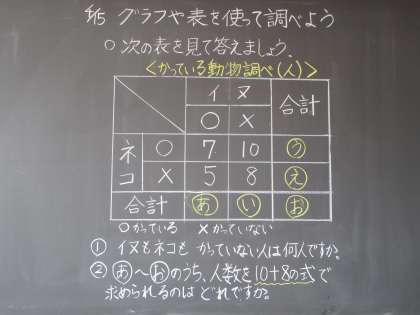 5/15 グラフや表を使って調べよう
○ 次の表を見て答えましょう。
<かっている動物調べ(人)>
イヌ 合計
○ ×
ネコ ○ 7 10 う
× 5 8 え
合計 あ い お
○かっている ×かっていない
① イヌもネコも かっていない人は何人ですか?
② あ～おのうち、人数を10+8の式で
求められるのは どれですか?